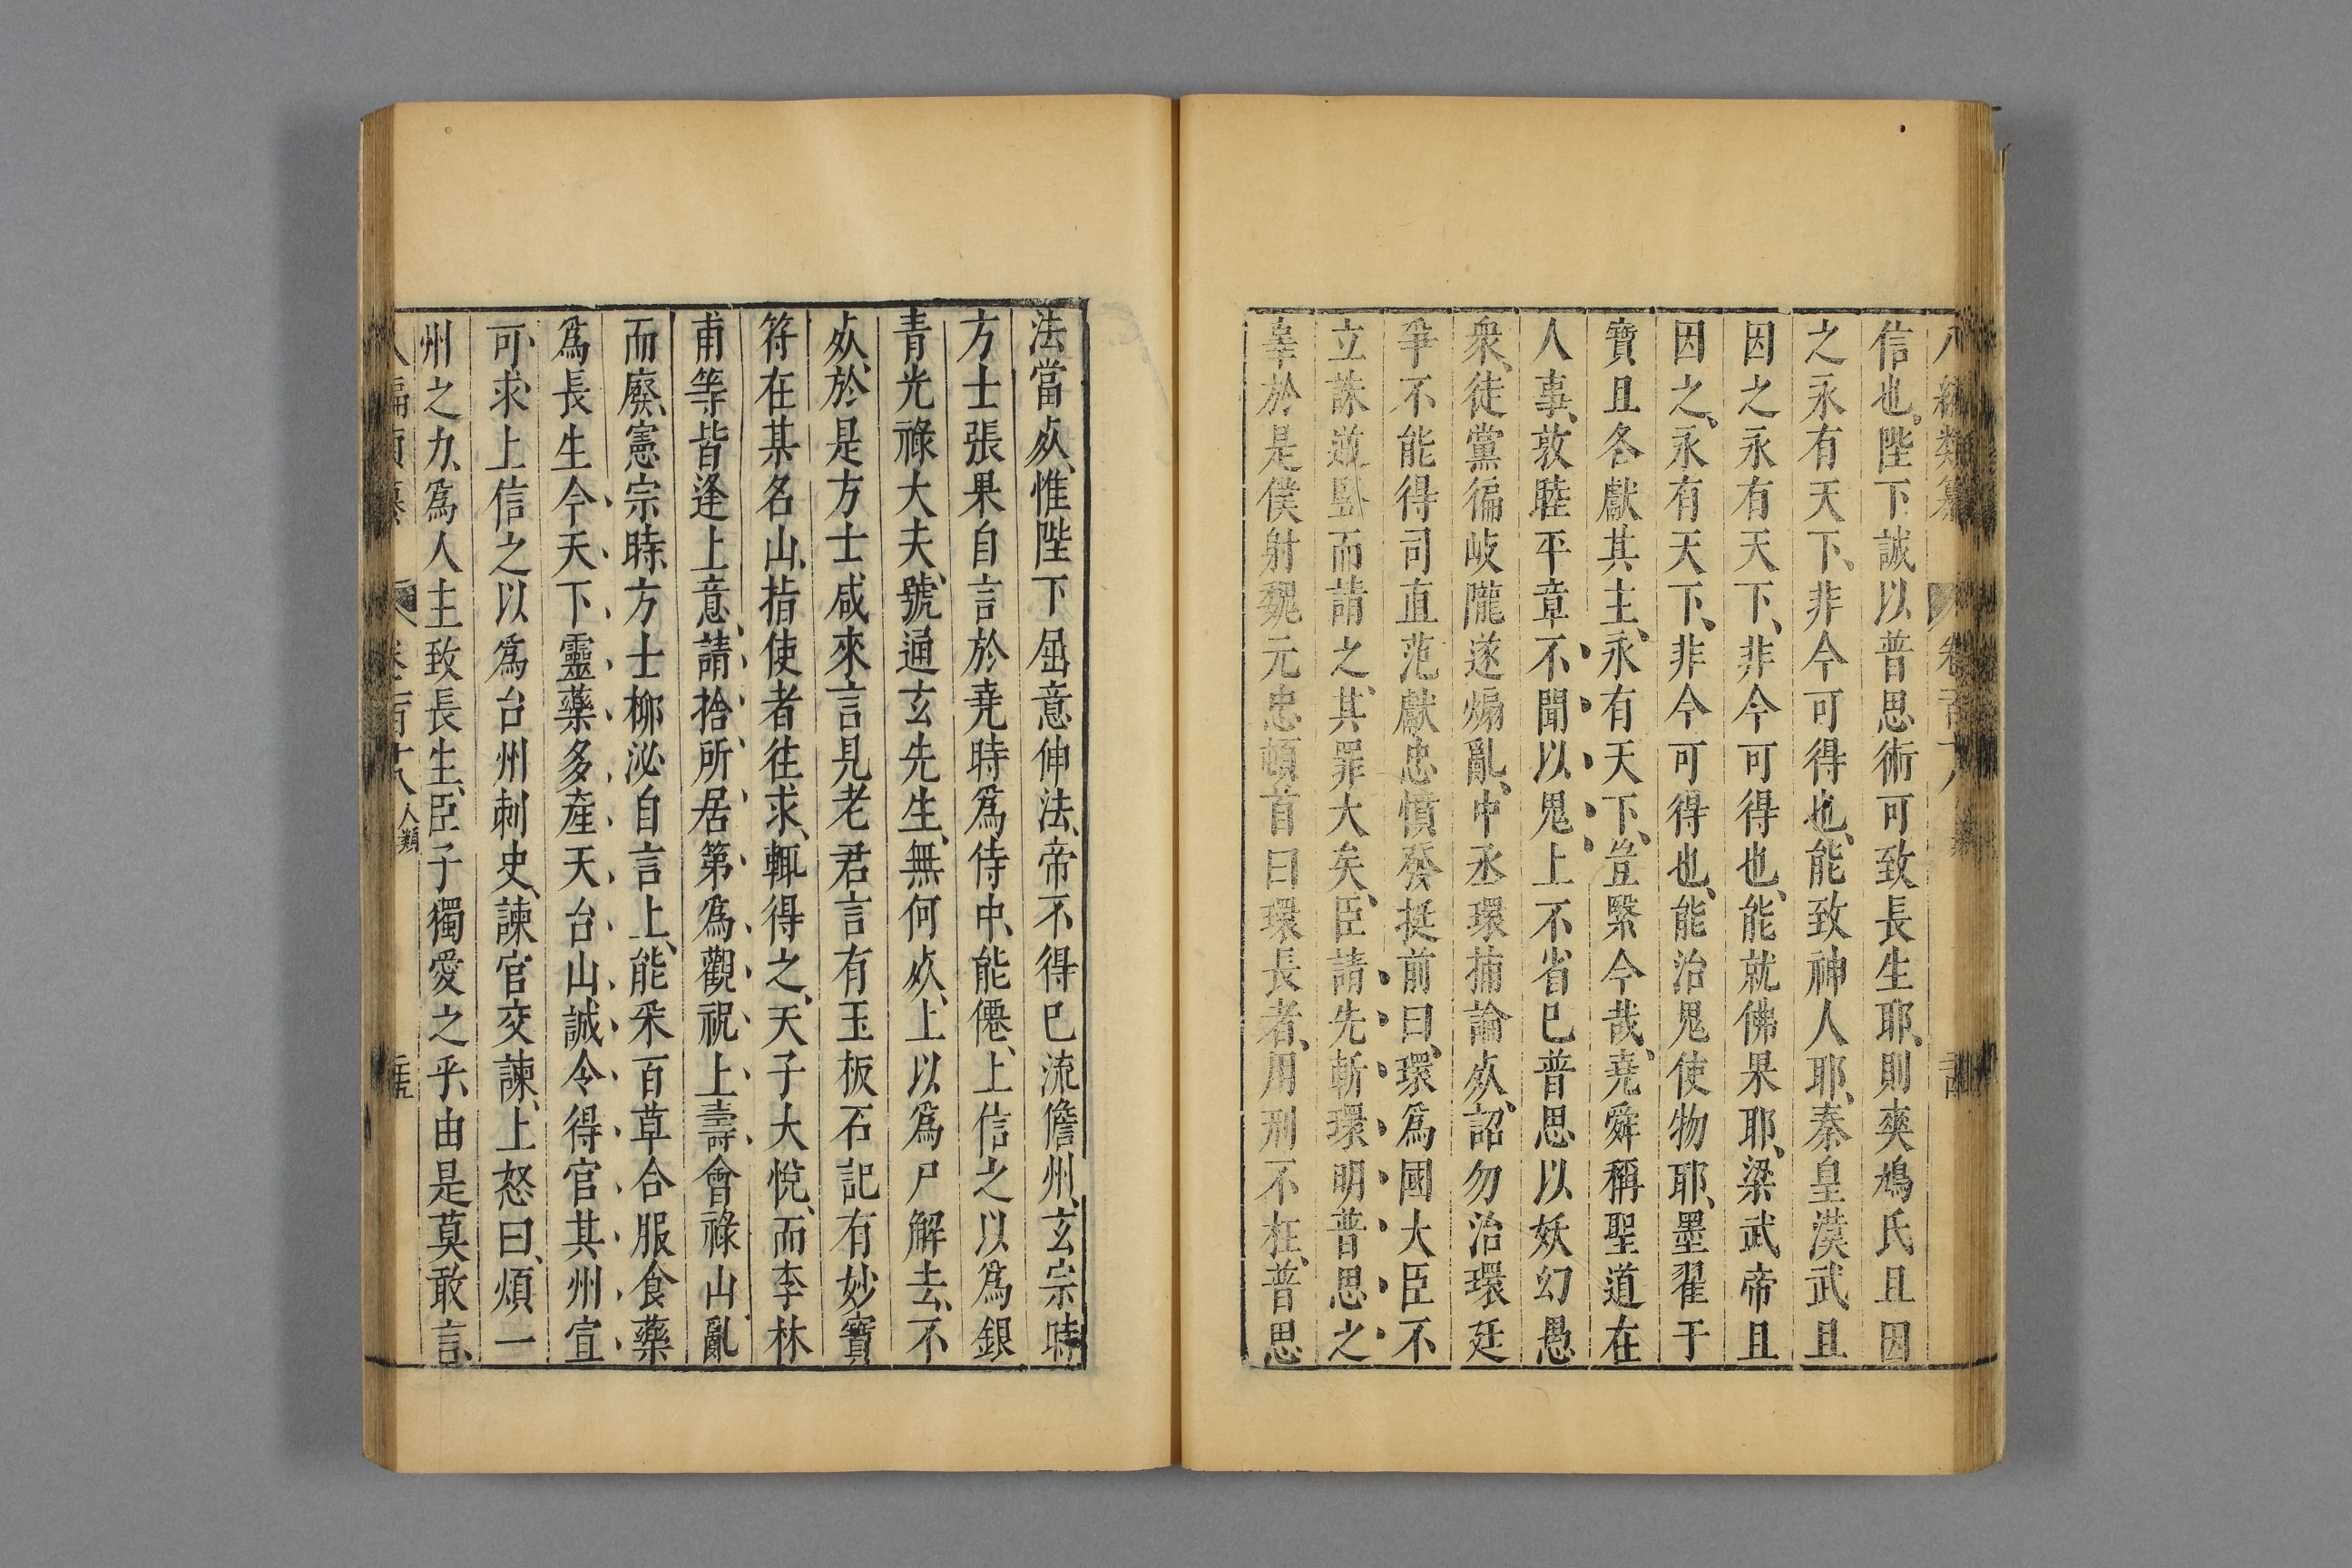 八編類纂 卷百十八
信也、陛下誠以普思術可致長生耶、則爽鳩氏且因
之永有天下、非今可得也、能致神人耶、秦皇漢武且
因之永有天下、非今可得也、能就佛果耶、梁武帝且
因之、永有天下、非今可得也、能治鬼使物耶、墨翟于
寶且各獻其主、永有天下、豈緊今哉、堯舜稱聖道在
人事、敦睦平章、不聞以鬼上不省已普思以妖幻愚
衆、徒黨徧岐隴遂煽亂、中丞環捕論㱙、詔勿治環廷
爭不能得司直范獻忠憤發挺前曰、環爲國大臣不
立誅逆豎而請之、其罪大矣、臣請先斬環明普思之
辜於是僕射魏元忠頓首曰環長者、用刑不枉、普思
法當㱙、惟陛下屈意伸法、帝不得已流儋州、玄宗時
方士張果自言於堯時爲侍中、能僊、上信之以爲銀
青光祿大夫、號通玄先生、無何㱙、上以爲尸解去、不
㱙、於是方士咸來言見老君言有玉板石記有妙寶
符在某名山、指使者往求、輒得之、天子大悅、而李林
甫等皆逢上意、請捨所居第爲觀祝上壽會祿山亂
而廢、憲宗時、方士柳泌自言上、能采百草合服食藥
爲長生今天下靈藥多産天台山誠令得官其州宜
可求上信之以爲台州刺史、諫官交諫、上怒曰、煩一
州之力、爲人主致長生、臣子獨愛之乎、由是莫敢言、
八編類纂 卷百十八 人類